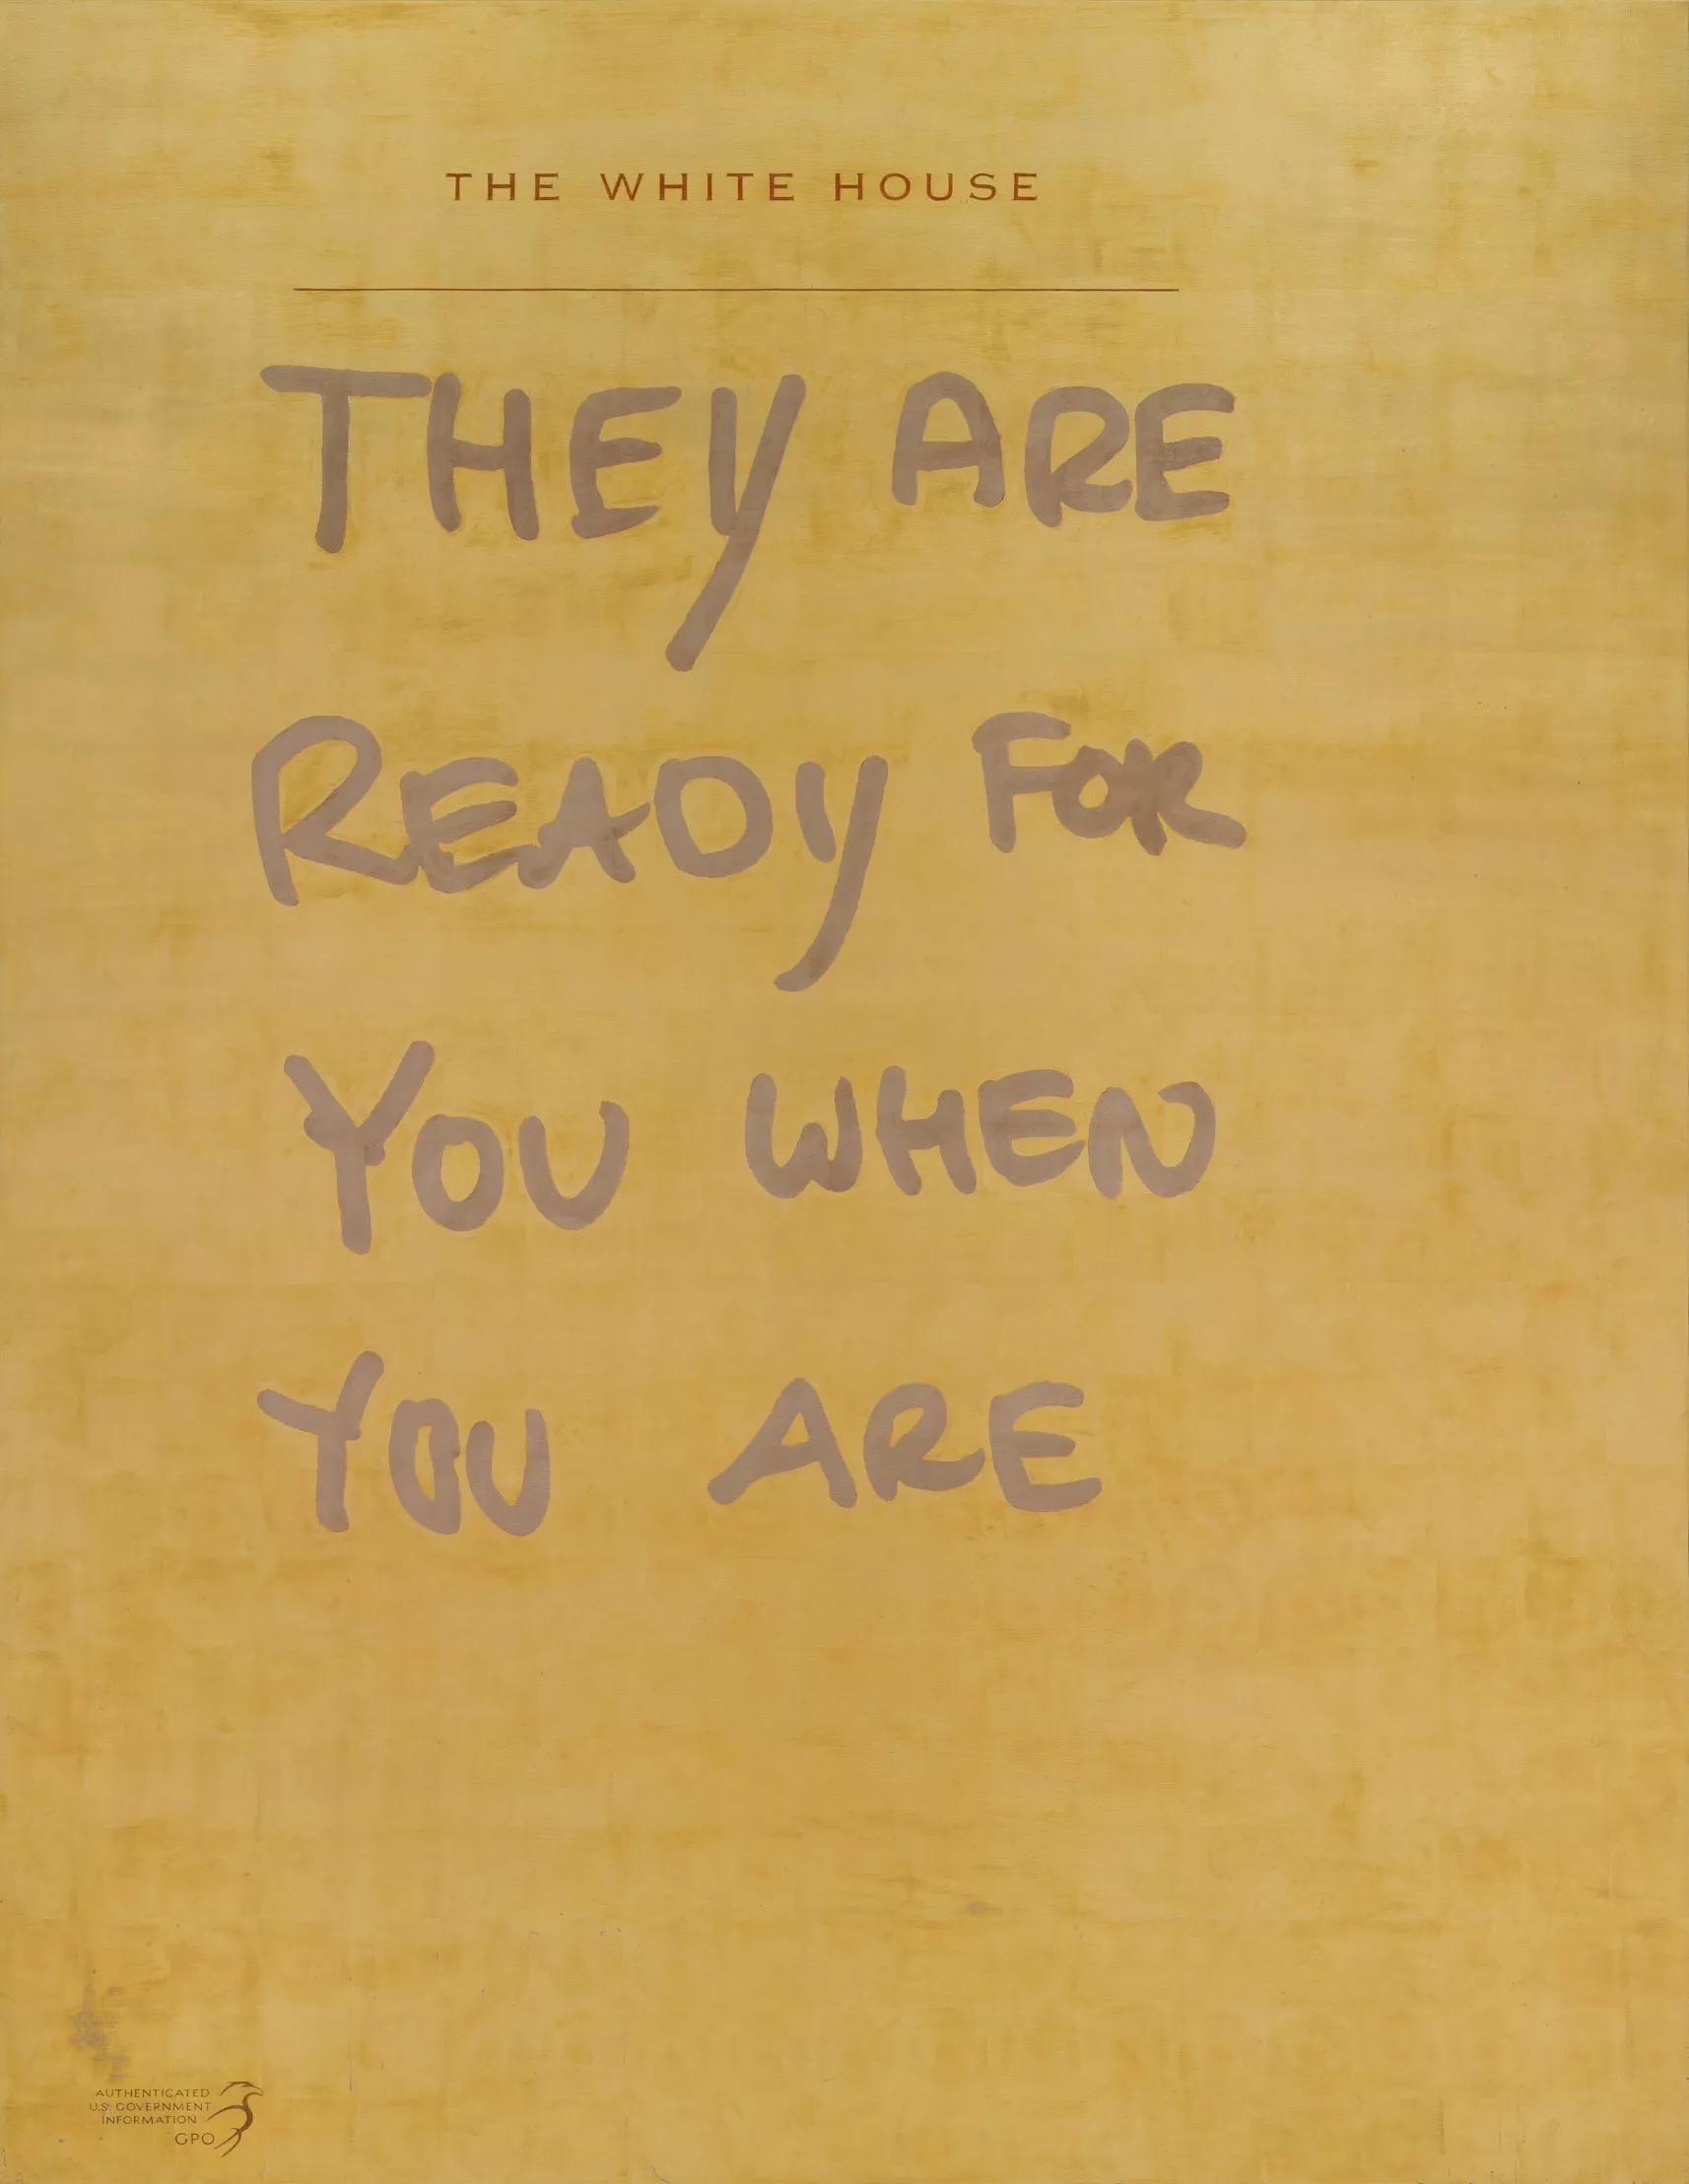 THE WHITE HOUSE
THEY ARE
READY FOR
YOU WHEN
YOU ARE
AUTHENTICATED
U.S. GOVERNMENT
INFORMATION
GPO